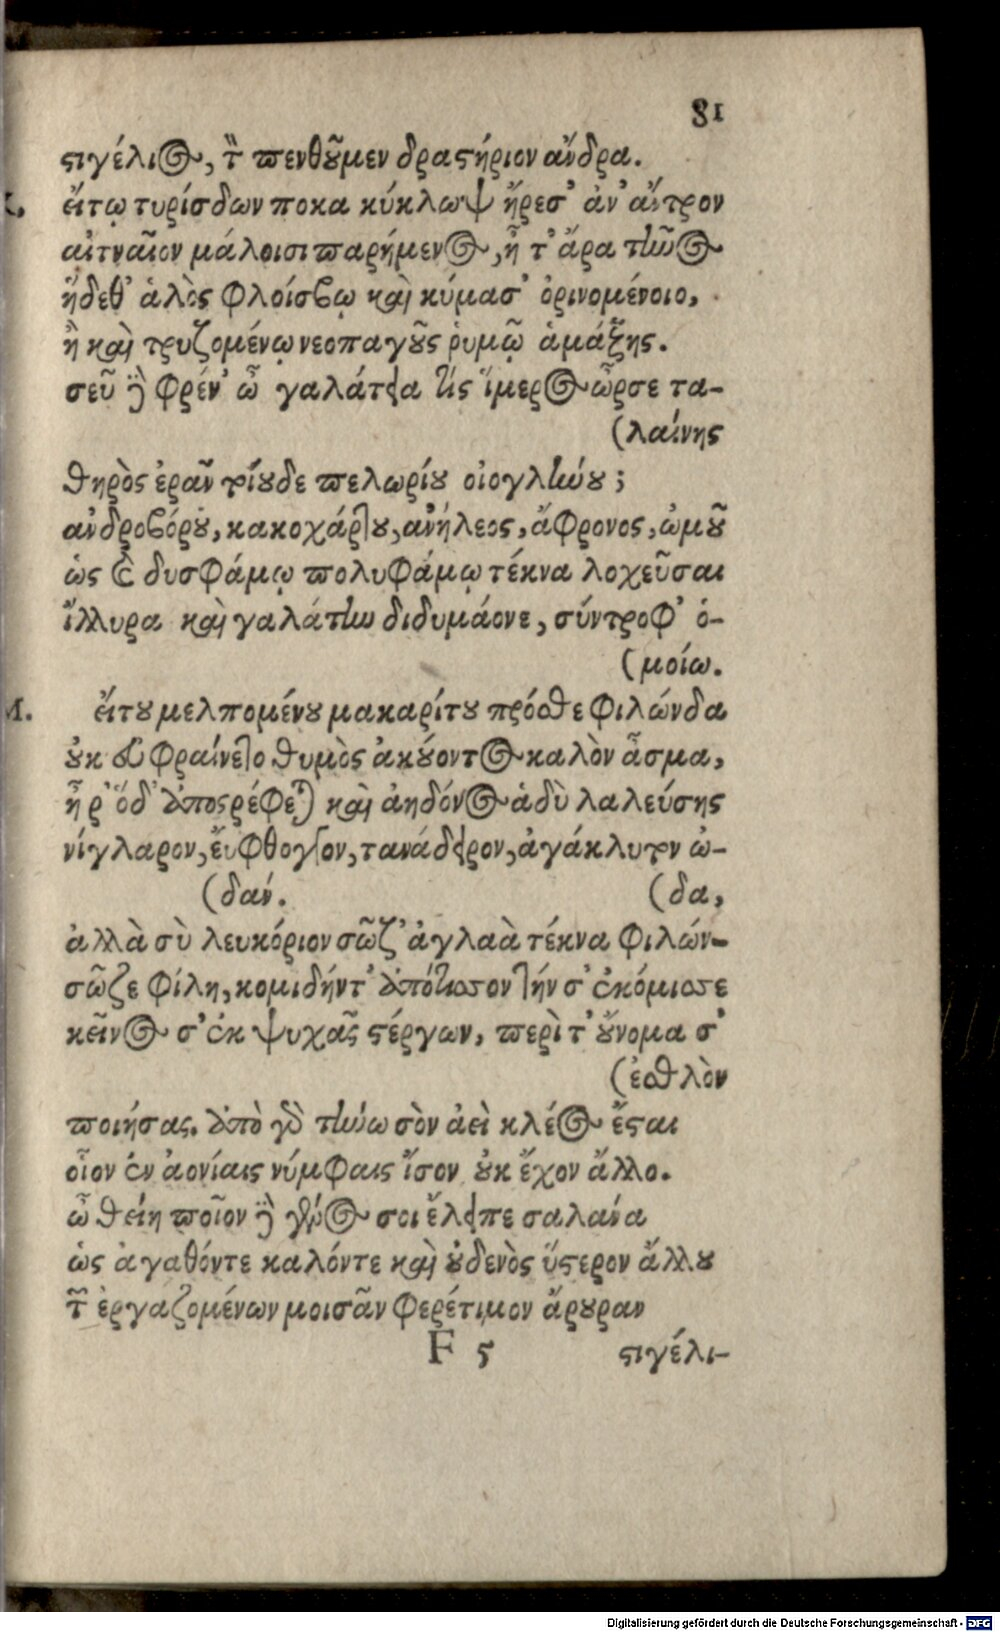 81
ϛιγέλιος, τ̀ πενθοῦμεν δραϛήριον ἄνδρα.
εἴτῳ τυρίσδων ποκα κύκλωψ ἤρεσ' ἀν' ἄντρον
αἰτναῖον μάλοισι παρήμενος, ἦ τ' ἄρα τῆνος
ἥδεθ' ἁλὸς φλοίσβῳ καὶ κύμασ' ὀρινομένοιο,
ἢ καὶ τρυζομένῳ νεοπαγοῦς ῥυμῷ ἁμάξης.
σεῦ δὲ φρέν' ὦ γαλάτεια τίς ἵμερος ὦρσε τα-
(λαίνης
θηρὸς ἐρᾶν τοίουδε πελωρίου οἰογλήνου;
ἀνδροβόρου, κακοχάρτου, ἀνήλεος, ἄφρονος, ὠμοῦ
ὡς δυσφάμῳ πολυφάμῳ τέκνα λοχεῦσαι
ἴλλυρα καὶ γαλάτην διδυμάονε, σύντροφ' ὁ-
(μοίω.
Μ. εἴτου μελπομένου μακαρίτου πρόσθε φιλώνδα
οὐκ εὐφραίνετο θυμὸς ἀκούοντος καλὸν ᾆσμα,
ἦ ῥ' ὅδ' ἀποϛρέφεται καὶ ἀηδόνος ἁδὺ λαλεύσης
νίγλαρον, εὔφθογγον, τανάδειρον, ἀγάκλυτον ὠ-
(δάν. (δα,
ἀλλὰ σὺ λευκόριον σῶζ' ἀγλαὰ τέκνα φιλών-
σῶζε φίλη, κομιδήντ' ἀπότισον τήν σ' ἐκόμισσε
κεῖνος σ' ἐκ ψυχᾶς ϛέργων, περὶ τ' οὔνομα σ'
(ἐσθλὸν
ποιήσας. ἀπὸ γὰρ τήνω σὸν ἀεὶ κλέος ἔϛαι
οἷον ἐν ἀονίαις νύμφαις ἴσον οὐκ ἔχον ἄλλο.
ὦ θείη ποῖον δὲ γένος σοι ἔλειπε σαλαάνα
ὡς ἀγαθόντε καλόντε καὶ οὐδενὸς ὕϛερον ἄλλου
τῶν ἐργαζομένων μοισᾶν φερέτιμον ἄρουραν
F 5 ϛιγέλι-
Digitalisierung gefördert durch die Deutsche Forschungsgemeinschaft - DFG